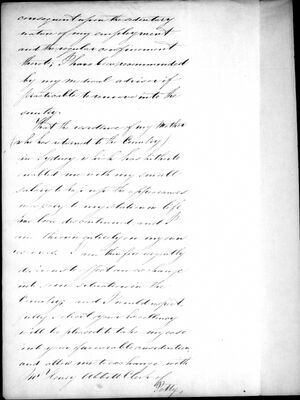 consequent upon the sedentary
nature of my employment
and the regular confinement
thereto, I have been recommended
by my medical adviser if
practicable to remove into the
country.
That the residence of my Mother
(who has returned to the Country)
in Sydney which has hitherto
enabled me with my small
salary to keep up the appearances
necessary to my station in life
has been discontinued and I
am thrown entirely on my own
resources. I am therefore urgently
desirous to effect an exchange
into some situation in the
Country, and I would respect
fully submit your Excellency
will be pleased to take my case
into your favorable consideration
and allow me to exchange with
Mr Henry Abbott Clerk of
Petty